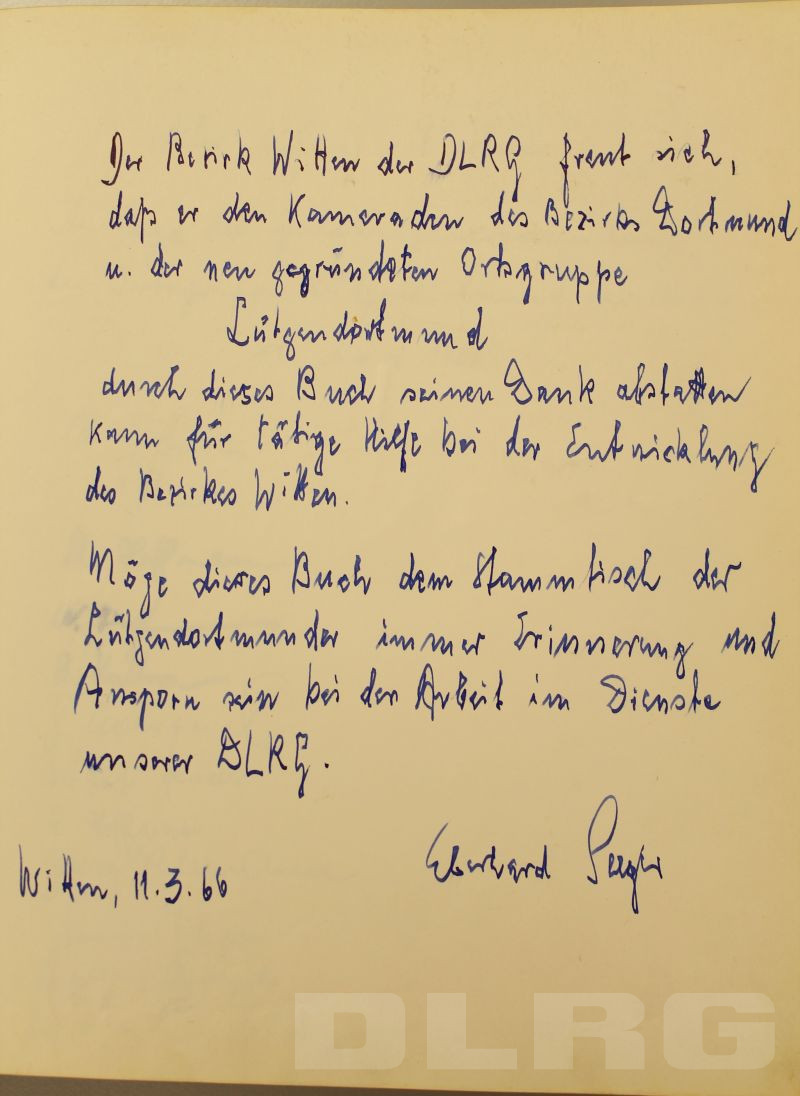 Der Bezirk Witten der DLRG freut sich,
daß er den Kameraden des Bezirks Dortmund
u. der neu gegründeten Ortsgruppe
Lütgendortmund
durch dieses Buch seinen Dank abstatten
kann für tätige Hilfe bei der Entwicklung
des Bezirkes Witten.
Möge dieses Buch dem Stammtisch der
Lütgendortmunder immer Erinnerung und
Ansporn sein bei der Arbeit im Dienste
unserer DLRG.
Eberhard
Witten, 11.3.66
DLRG